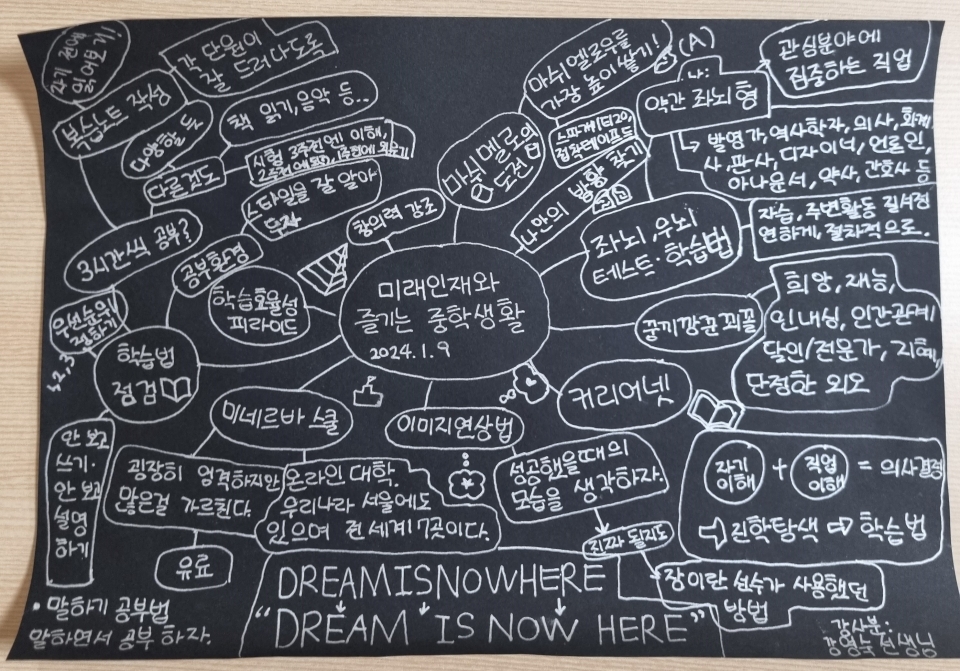 자기 전에
읽어보기!
각 단원이
잘 드러나도록
복습노트 작성
다양할 수
책 읽기, 음악 등..
다른것도
시험 3주전엔 이해,
스타일을 잘 알아
3시간씩 공부?
공부환경
창의력 강조
학습효율성
피라미드
우선순위
정하기
1, 2, 3
학습법
점검
마쉬멜로우를
가장 높이쌓기!
(A)
마쉬멜로의
도전
스파게티면20,
접착테이프 등
나만의 방향 찾기
나:
약간 좌뇌형
관심분야에
집중하는 직업
발명가, 역사학자, 의사, 회계
사, 판사, 디자이너, 언론인,
아나운서, 약사, 간호사 등
좌뇌, 우뇌
테스트·학습법
자습, 주변활동 질서정
연하게, 절차적으로.
미래인재와
즐기는 중학생활
2024.1.9
꿈끼깡꾼꾀꼴
희망, 재능,
인내심, 인간관계
달인/전문가, 지혜,
단정한 외모
커리어넷
미네르바 스쿨
이미지연상법
안 보고
쓰기·
안 보고
설명
하기
굉장히 엄격하지만
많은걸 가르친다.
유료
온라인 대학.
우리나라 서울에도
있으며 전 세계 7곳이다.
성공했을때의
모습을 생각하자.
진짜 될지도
자기
이해
+
직업
이해
= 의사결정
⇨ 진학탐색 ⇨ 학습법
DREAMISNOWHERE
"DREAM IS NOW HERE"
장미란 선수가 사용했던
방법
• 말하기 공부법
말하면서 공부 하자.
강사분:
선생님